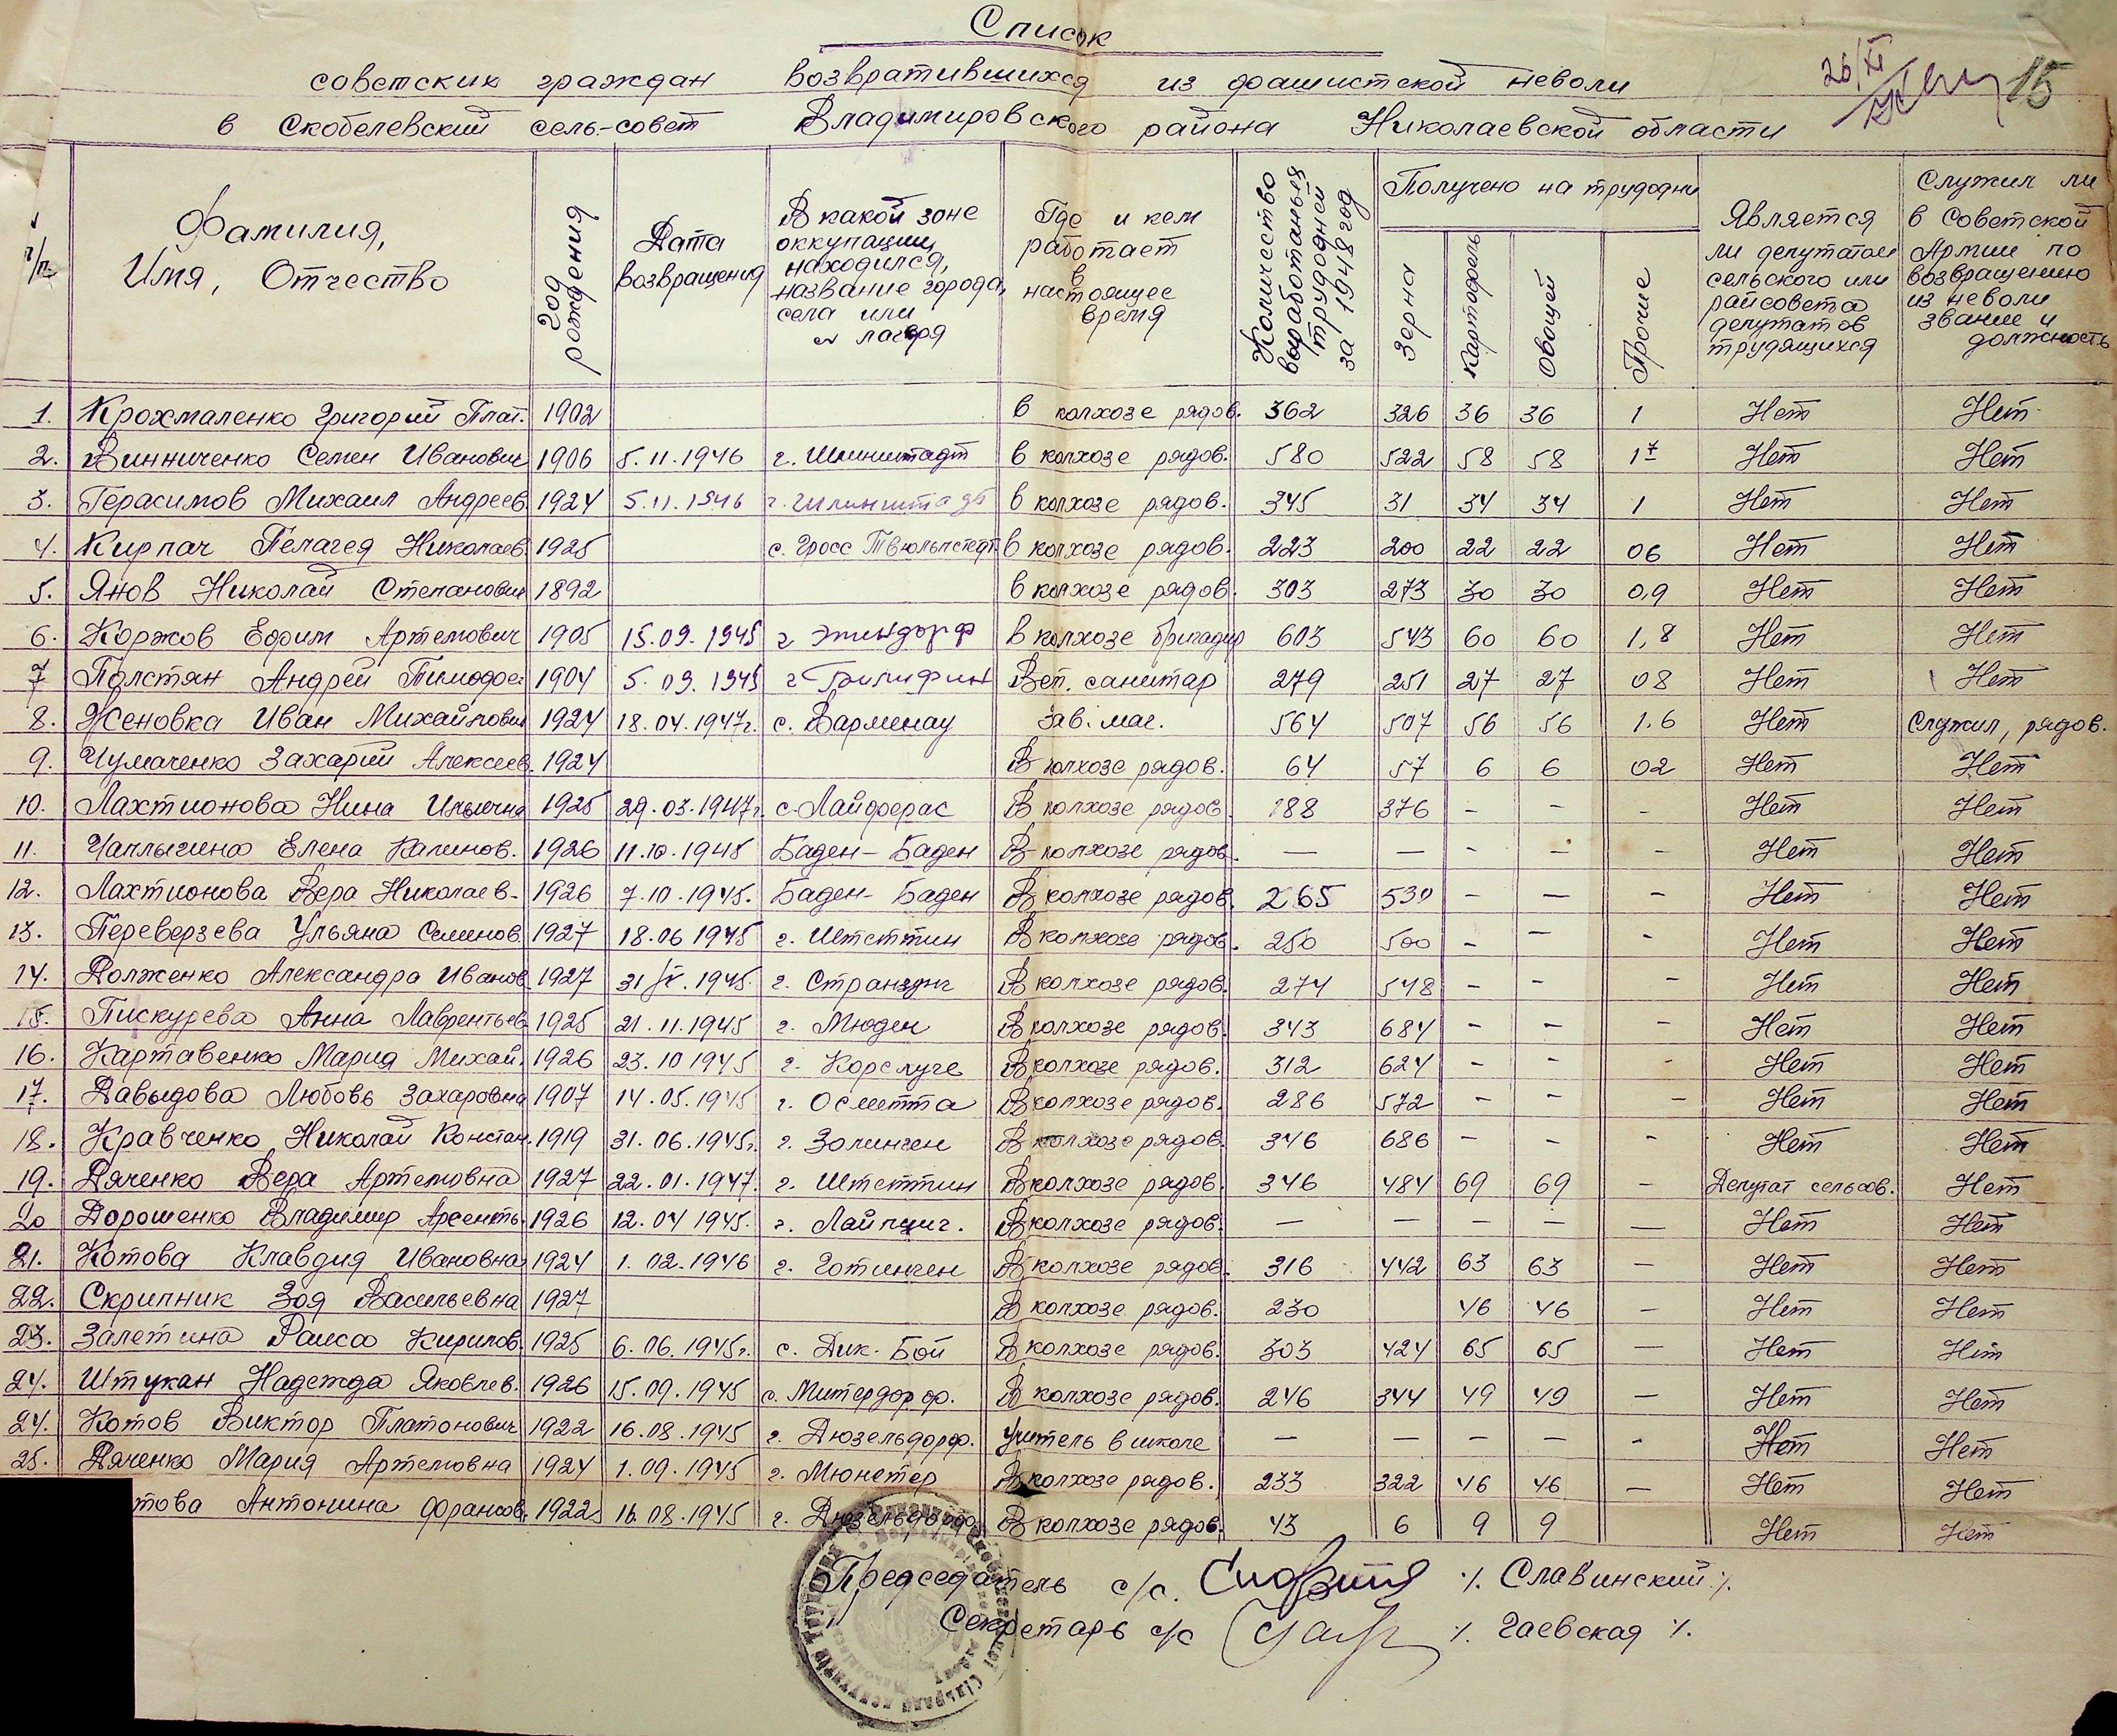 Список
советских граждан возвратившихся из фашистской неволи
в Скобелевский сель-совет Владимировского района Николаевской области
26/XI 15
п/п. Фамилия, Имя, Отчество Год рождения Дата возвращения В какой зоне оккупации находился, название города, села или лагеря Где и кем работает в настоящее время Количество выработаных трудодней за 1948 год Получено на трудодни Зерна Картофель Овощей Прочие Является ли депутатом сельского или райсовета депутатов трудящихся Служил ли в Советской Армии по возвращению из неволи звание и должность
1. Крохмаленко Григорий Плат. 1902 в колхозе рядов. 362 326 36 36 1 Нет Нет
2. Винниченко Семен Иванович 1906 5.11.1946 г. в колхозе рядов. 580 522 58 58 1 7 Нет Нет
3. Герасимов Михаил Андреев 1924 5.11.1946 г. в колхозе рядов. 345 31 34 34 1 Нет Нет
4. Кирпач Пелагея Николаев 1925 с. Гросс Твюльпстедт в колхозе рядов. 223 200 22 22 06 Нет Нет
5. Янов Николай Степанович 1892 в колхозе рядов. 303 273 30 30 0,9 Нет Нет
6. Коржов Ефрим Артемович 1905 15.09.1945 г. Эпиндорф в колхозе бригадир 603 543 60 60 1,8 Нет Нет
7 Полстян Андрей Тимофее 1904 5.09.1945 г. Вет. санитар 279 251 27 27 08 Нет Нет
8. Женовка Иван Михайлович 1924 18.04.1947г. с. Варменау зав. маг. 564 507 56 56 1.6 Нет Служил, рядов.
9. Чумаченко Захарий Алексеев. 1924 В колхозе рядов. 64 57 6 6 02 Нет Нет
10. Лахтионова Нина Ильична 1925 29.03.1947г. с. Лайферас В колхозе рядов. 188 376 - - - Нет Нет
11. Чаплыгина Елена Калинов. 1926 11.10.1945 Баден-Баден В колхозе рядов. — — - — - Нет Нет
12. Лахтионова Вера Николаев. 1926 7.10.1945. Баден-Баден В колхозе рядов. 265 530 - — - Нет Нет
13. Переверзева Ульяна Семинов. 1927 18.06 1945 г. Штеттин В колхозе рядов. 250 500 - — - Нет Нет
14. Долженко Александра Иванов. 1927 31/V.1945. г. Странзунг В колхозе рядов. 274 548 - - - Нет Нет
15. Пискурева Анна Лаврентьев 1925 21.11.1945 г. Мюден В колхозе рядов. 343 684 - - - Нет Нет
16. Картавенко Мария Михай. 1926 23.10 1945 г. Корслуге В колхозе рядов. 312 624 - - - Нет Нет
17. Давыдова Любовь Захаровна 1907 14.05.1945 г. Осметта В колхозе рядов. 286 572 - - - Нет Нет
18. Кравченко Николай Констан. 1919 31.06.1945г. г. Золинген В колхозе рядов. 346 686 - - - Нет Нет
19. Дяченко Вера Артемовна 1927 22.01.1947. г. Штеттин В колхозе рядов. 346 484 69 69 - Депутат сельсов. Нет
20 Дорошенко Владимир Арсенть. 1926 12.04 1945. г. Лайпциг. В колхозе рядов. — — — — — Нет Нет
21. Котова Клавдия Ивановна 1924 1.02.1946 г. Готинген В колхозе рядов. 316 442 63 63 — Нет Нет
22. Скрипник Зоя Васильевна 1927 В колхозе рядов. 230 46 46 — Нет Нет
23. Залетина Раиса Кирилов. 1925 6.06.1945г. с. Дик. Бой В колхозе рядов. 303 424 65 65 — Нет Нет
24. Штукан Надежда Яковлев. 1926 15.09.1945 с. Митердорф. В колхозе рядов. 246 344 49 49 — Нет Нет
24. Котов Виктор Платонович 1922 16.08.1945 г. Дюзельдорф. Учитель в школе — — — — - Нет Нет
25. Дяченко Мария Артемовна 1924 1.09.1945 г. Мюнстер В колхозе рядов. 233 322 46 46 — Нет Нет
това Антонина Франсов. 1922 16.08.1945 г. Дюзельдорф. В колхозе рядов. 43 6 9 9 Нет Нет
Председатель с/с. /. Славинский /.
Секретарь с/с /. Гаевская /.